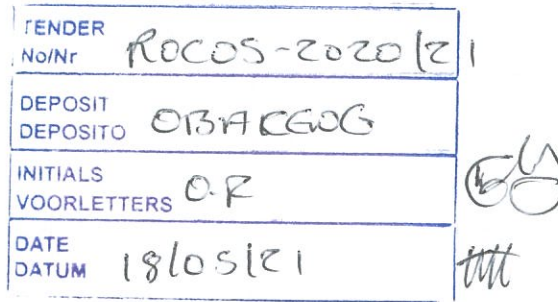 TENDER
No/Nr ROCOS-2020/21
DEPOSIT
DEPOSITO OBAKENG
INITIALS
VOORLETTERS O.R
DATE
DATUM 18/05/21